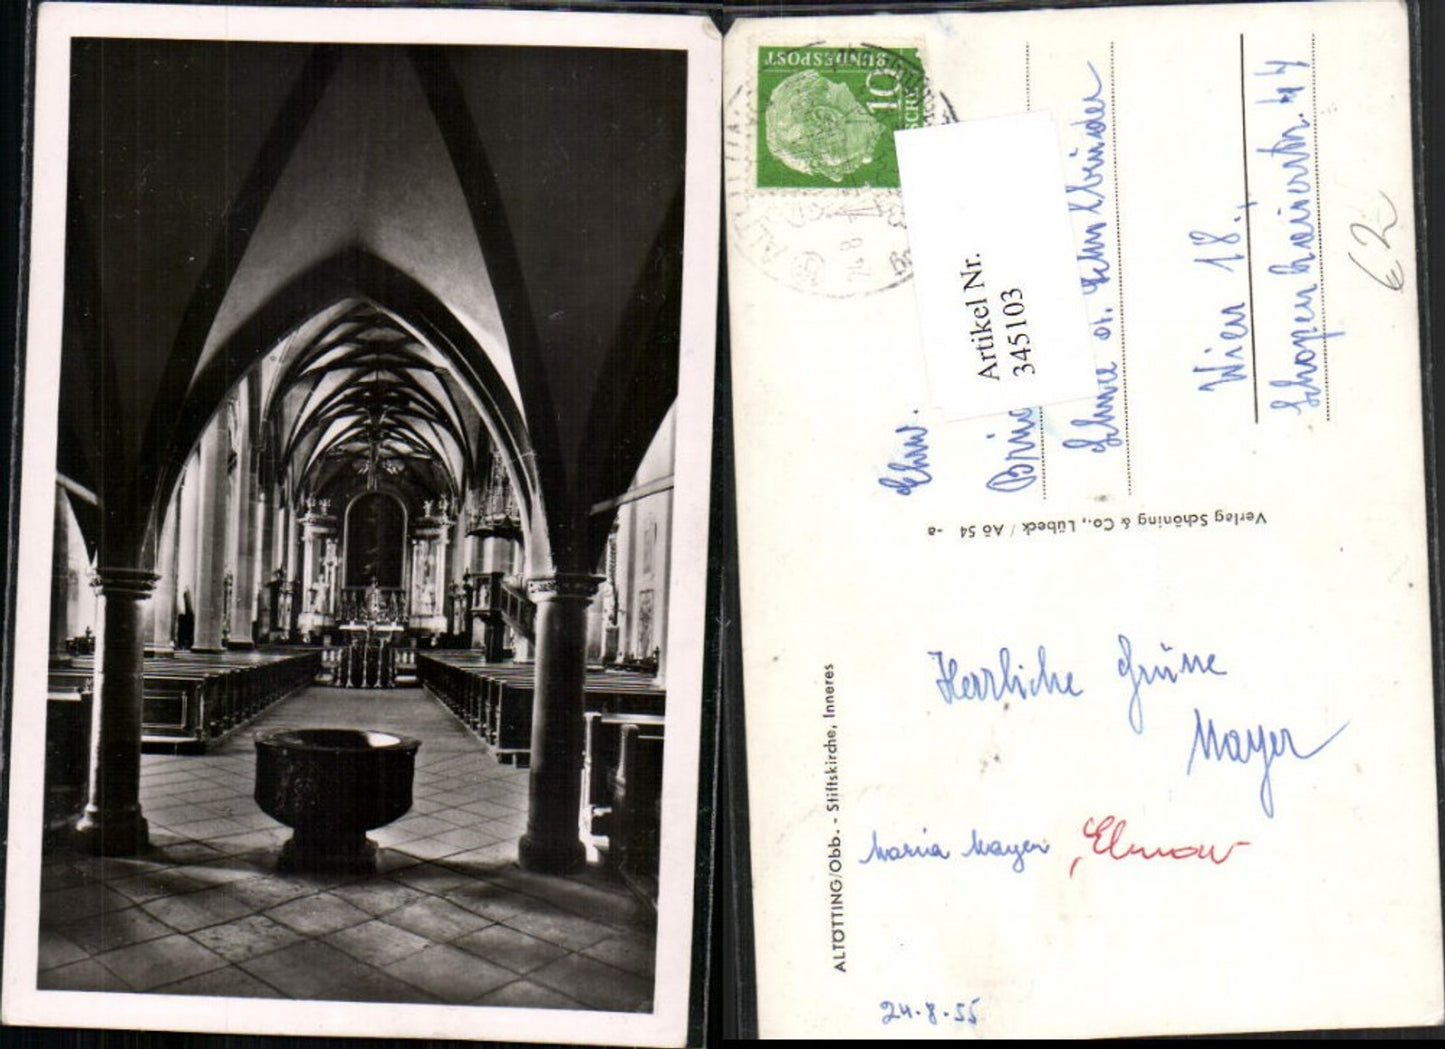 BUNDESPOST
10
Artikel Nr.
345103
Ehrw.
Wien 18.,
Schopenhauerstr. 44
62
Verlag Schöning & Co., Lübeck / Aö 54 -a
ALTÖTTING/Obb. - Stiftskirche, Inneres
Herrliche Grüsse
Mayer
Maria Mayer
24.8.55